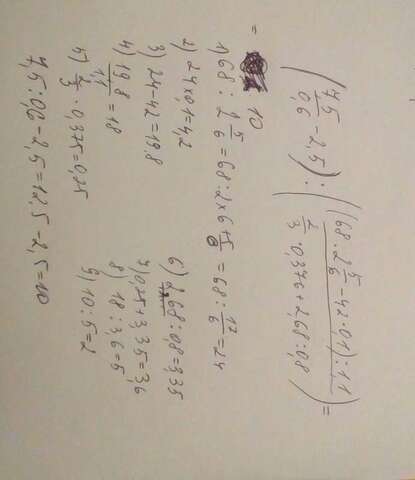 (7,5/0,6 - 2,5) : ((68 : 2 5/6 - 42 · 0,1) : 1,1 / 2/3 · 0,376 + 2,68 : 0,8) =
= 10
1) 68 : 2 5/6 = 68 : 2×6+5/6 = 68 : 17/6 = 24
2) 24×0,1=4,2
3) 24-42=19,8
4) 19,8/1,1 = 18
5) 2/3 · 0,375=0,25
6) 2,68 : 0,8=3,35
7) 0,25+3,35=3,6
8) 18 : 3,6=5
9) 10 : 5=2
7,5 : 0,6 - 2,5 = 12,5 - 2,5 = 10